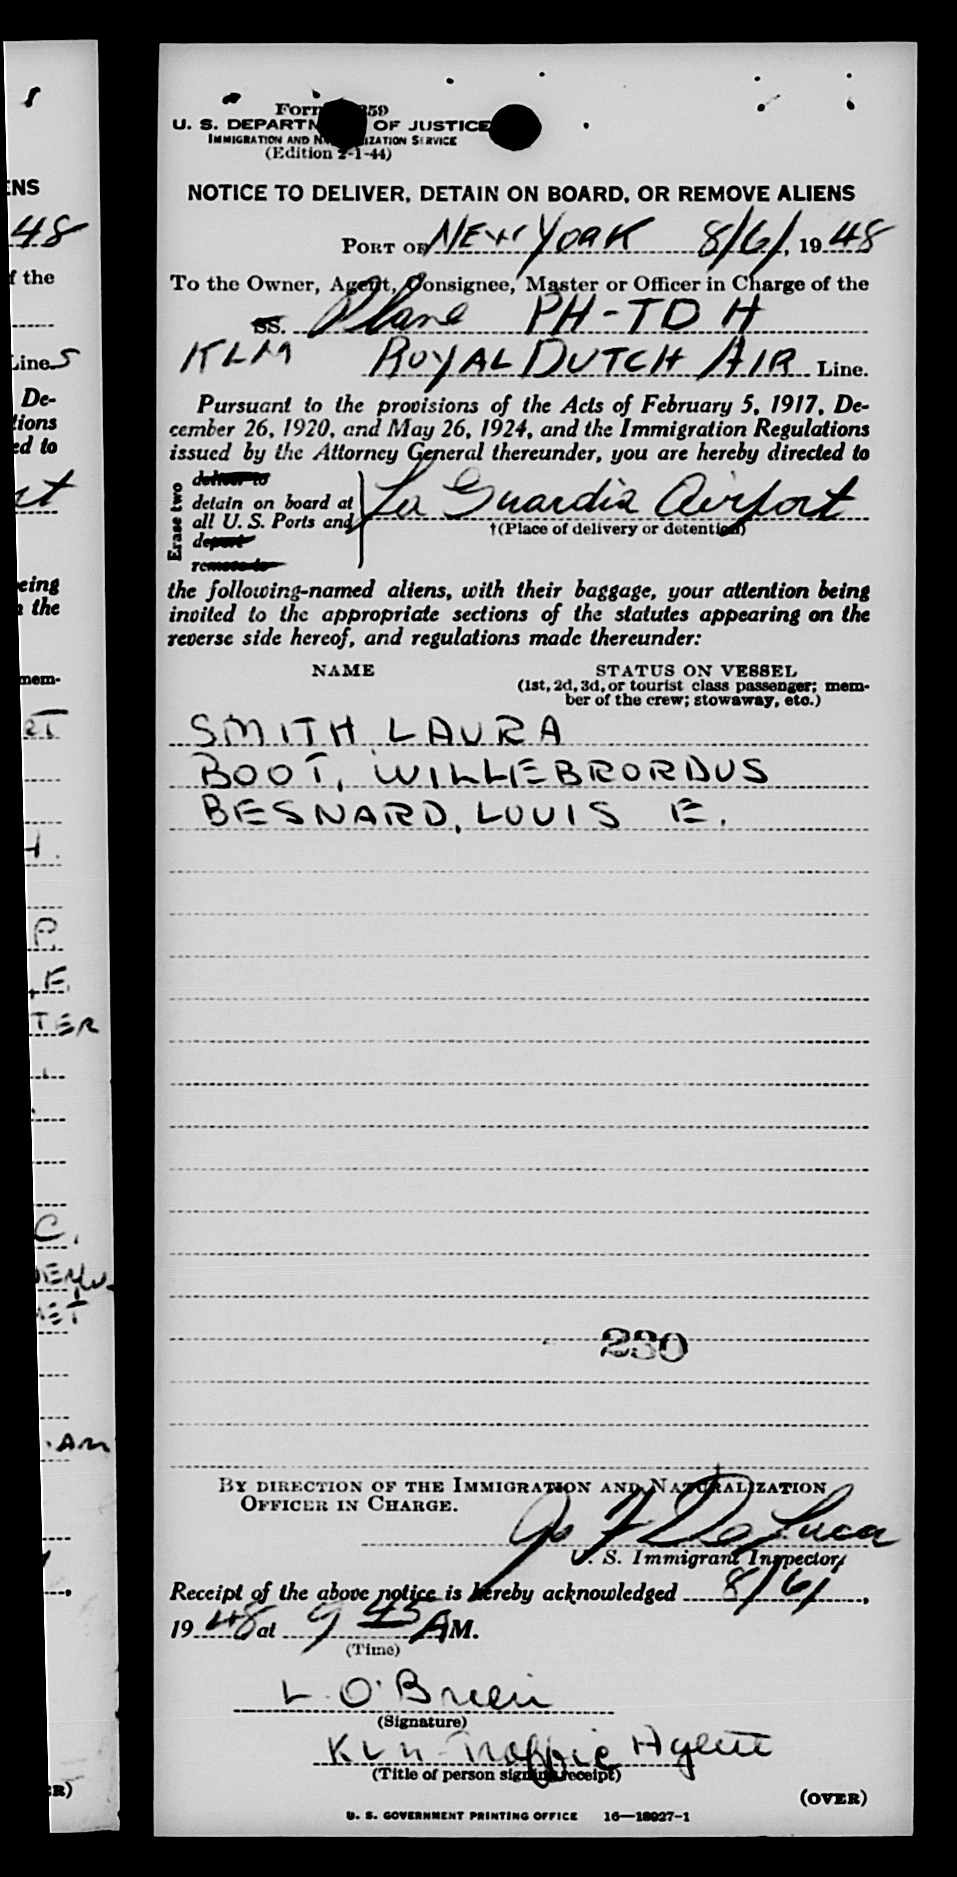 Form 259
U. S. DEPARTM OF JUSTICE
IMMIGRATION AND N IZATION SERVICE
(Edition 2-1-44)
NOTICE TO DELIVER, DETAIN ON BOARD, OR REMOVE ALIENS
PORT OF NEW YORK 8/6/, 1948
To the Owner, Agent, Consignee, Master or Officer in Charge of the
SS. Plane PH-TDH
KLM ROYAL DUTCH AIR Line.
Pursuant to the provisions of the Acts of February 5, 1917, De-
cember 26, 1920, and May 26, 1924, and the Immigration Regulations
issued by the Attorney General thereunder, you are hereby directed to
Erase two
deliver to
detain on board at
all U. S. Ports and
deport
remove to
La Guardia Airport
†(Place of delivery or detention)
the following-named aliens, with their baggage, your attention being
invited to the appropriate sections of the statutes appearing on the
reverse side hereof, and regulations made thereunder:
NAME STATUS ON VESSEL
(1st, 2d, 3d, or tourist class passenger; mem-
ber of the crew; stowaway, etc.)
SMITH, LAURA
BOOT, WILLEBRORDUS
BESNARD, LOUIS E.
230
BY DIRECTION OF THE IMMIGRATION AND NATURALIZATION
OFFICER IN CHARGE.
Jo F De Luca
U. S. Immigrant Inspector,
Receipt of the above notice is hereby acknowledged 8/6/,
1948 at 9 45 AM.
(Time)
L. O'Brien
(Signature)
KLM Traffic Agent
(Title of person signing receipt)
(OVER)
U. S. GOVERNMENT PRINTING OFFICE 16—18027-1
ENS
48
f the
Line S
De-
tions
ed to
rt
being
n the
mem-
RT
H.
P.
, E.
TER
C.
ET
AM
ER)